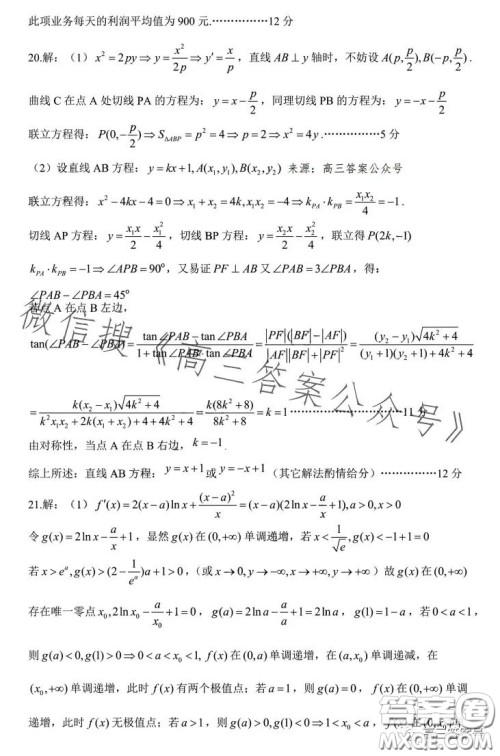 此项业务每天的利润平均值为 900 元.……………12 分
20.解：（1） x²=2py⇒y=x²/(2p)⇒y'=x/p，直线 AB⊥y 轴时，不妨设 A(p,p/2),B(-p,p/2).
曲线 C 在点 A 处切线 PA 的方程为：y=x-p/2，同理切线 PB 的方程为：y=-x-p/2
联立方程得：P(0,-p/2)⇒S△ABP=p²=4⇒p=2⇒x²=4y.……………5 分
（2）设直线 AB 方程：y=kx+1,A(x₁,y₁),B(x₂,y₂) 来源：高三答案公众号
联立方程得：x²-4kx-4=0⇒x₁+x₂=4k,x₁x₂=-4⇒k_PA·k_PB=x₁x₂/4=-1.
切线 AP 方程：y=x₁x/2-x₁²/4，切线 BP 方程：y=x₂x/2-x₂²/4，联立得 P(2k,-1)
k_PA·k_PB=-1⇒∠APB=90°，又易证 PF⊥AB 又∠PAB=3∠PBA，得：
∠PAB-∠PBA=45°
若点 A 在点 B 左边，
tan(∠PAB-∠PBA)=(tan∠PAB-tan∠PBA)/(1+tan∠PAB·tan∠PBA)=|PF|(|BF|-|AF|)/(|AF||BF|+|PF|²)=(y₂-y₁)√(4k²+4)/((y₁+1)(y₂+1)+4k²+4)
=k(x₂-x₁)√(4k²+4)/(k²x₁x₂+2k(x₁+x₂)+4+4k²+4)=k(8k²+8)/(8k²+8)=k=1……………11 分
由对称性，当点 A 在点 B 右边，k=-1.
综上所述：直线 AB 方程：y=x+1或y=-x+1（其它解法酌情给分）……………12 分
21.解：（1） f'(x)=2(x-a)lnx+(x-a)²/x=(x-a)(2lnx-a/x+1),a>0,x>0
令 g(x)=2lnx-a/x+1，显然 g(x) 在 (0,+∞) 单调递增，若 x<1/√e,g(x)<-1+1=0
若 x>eᵃ,g(x)>(2-1/eᵃ)a+1>0，（或 x→0,y→-∞，x→+∞,y→+∞）故 g(x) 在 (0,+∞)
存在唯一零点 x₀,2lnx₀-a/x₀+1=0，g(a)=2lna-1+1=2lna，g(1)=1-a，若 0<a<1，
则 g(a)<0,g(1)>0⇒0<a<x₀<1, f(x) 在 (0,a) 单调递增，在 (a,x₀) 单调递减，在
(x₀,+∞) 单调递增，此时 f(x) 有两个极值点；若 a=1，则 a=x₀=1，f(x) 在 (0,+∞) 单调
递增，此时 f(x) 无极值点；若 a>1，则 g(a)>0,g(1)<0⇒1<x₀<a，f(x) 在 (0,
微信搜《高三答案公众号》
答案圈
MXQE.COM